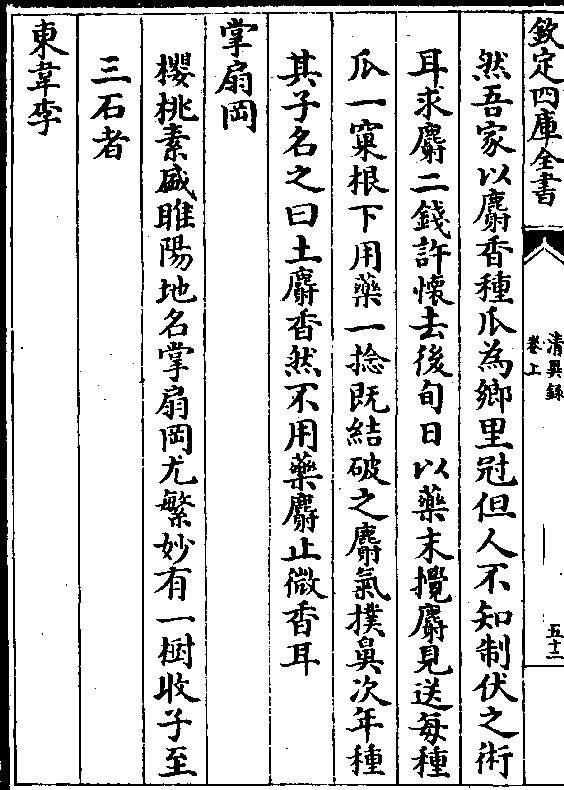 欽定四庫全書
清異録
卷上
五十二
然吾家以麝香種瓜為鄉里冠但人不知制伏之術
耳求麝二錢許懷去後旬日以藥末攪麝見送每種
瓜一窠根下用藥一捻既結破之麝氣撲鼻次年種
其子名之曰土麝香然不用藥麝止微香耳
掌扇岡
櫻桃素盛睢陽地名掌扇岡尤繁妙有一樹收子至
三石者
東韋李